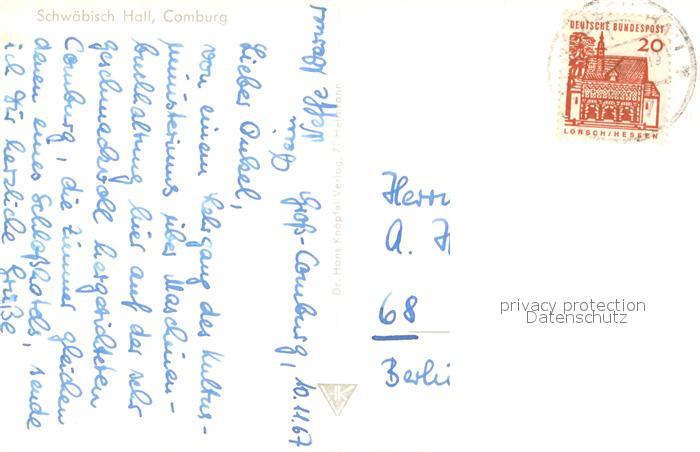 Schwäbisch Hall, Comburg
Groß-Comburg, 10.11.67
Lieber Onkel,
von einem Lehrgang des Kultus-
ministeriums über Maschinen-
buchhaltung hier auf der sehr
geschmackvoll hergerichteten
Comburg, die Zimmer gleichen
denen eines Schloßhotels, sende
ich Dir herzliche Grüße
Dein
Neffe
Dr. Hans Knöpfel Verlag, 71 Heilbronn
HK
DEUTSCHE BUNDESPOST
20
LORSCH/HESSEN
Herrn
A. H
68
Berli
privacy protection
Datenschutz